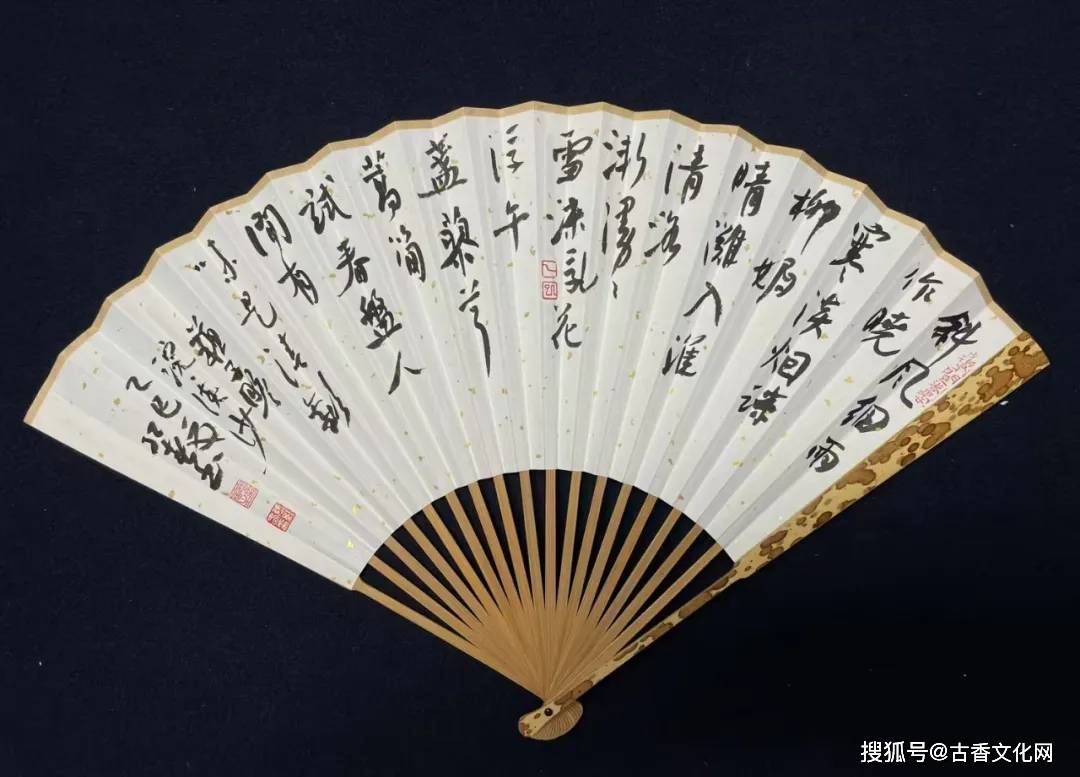 斜风细雨
作晓
寒淡烟疎
柳媚
晴灘入淮
清洛
渐漫々
雪沫乳花
浮午
盏蓼茸
蒿笋
试春盤人
间有
味是清歡
浣溪沙
乙巳
搜狐号@古香文化网